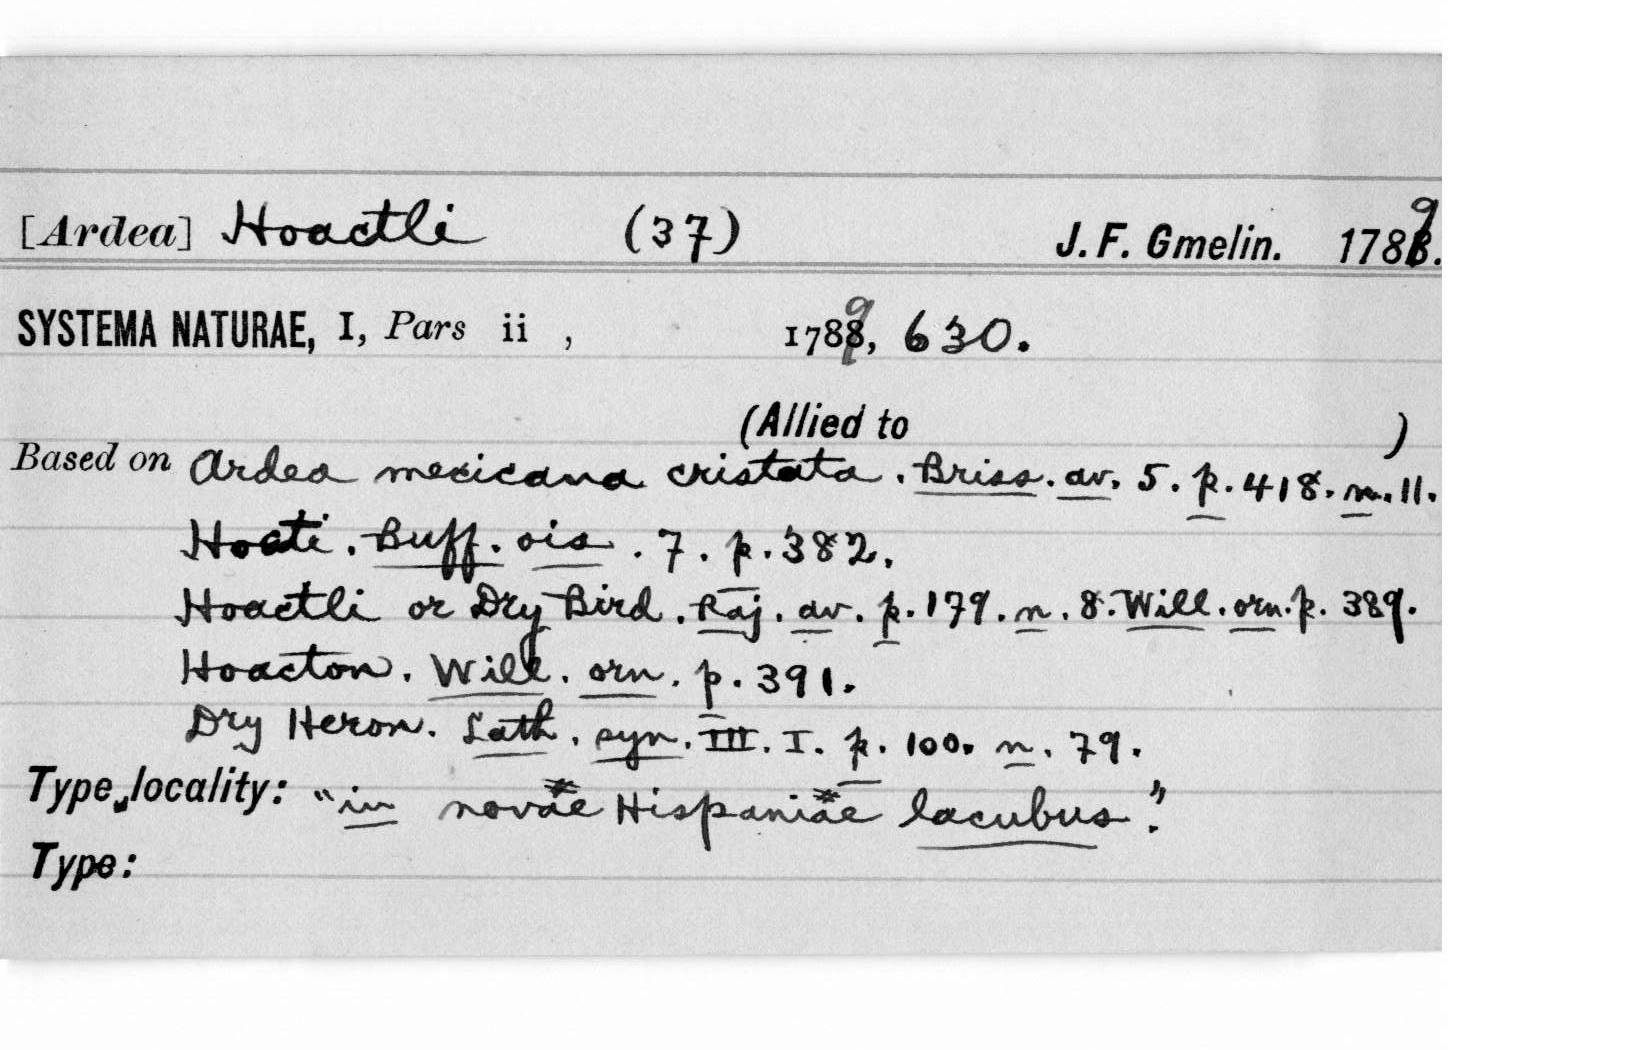 [Ardea] Hoactli (37) J. F. Gmelin. 1789.
SYSTEMA NATURAE, I, Pars ii , 1789, 630.
(Allied to )
Based on Ardea mexicana cristata. Briss. av. 5. p. 418. n. 11.
Hoati. Buff. ois. 7. p. 382.
Hoactli or Dry Bird. Raj. av. p. 179. n. 8. Will. orn. p. 389.
Hoacton. Will. orn. p. 391.
Dry Heron. Lath. syn. III. I. p. 100. n. 79.
Type locality: "in novae Hispaniae lacubus".
Type: